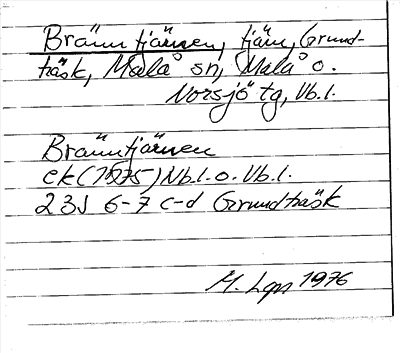 Bränntjärnen, tjärn, Grund-
träsk, Malå sn, Malå o.
Norsjö tg, Vb.l.
Bränntjärnen
ek (1975) Nb.l. o. Vb.l.
23J 6-7 c-d Grundträsk
M. Lgn 1976